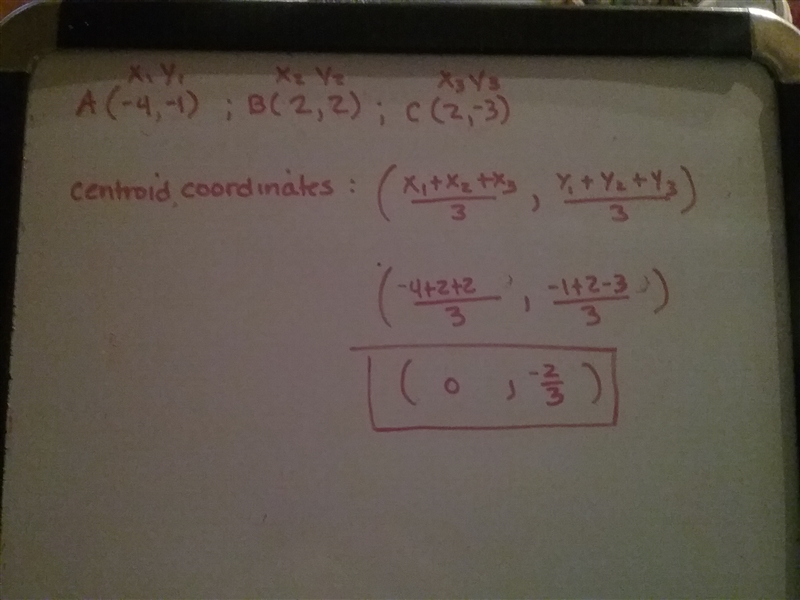 X₁ Y₁ X₂ Y₂ X₃ Y₃
A (-4,-1) ; B( 2, 2) ; C (2,-3)
centroid coordinates : ( X₁+X₂+X₃/3 , Y₁+Y₂+Y₃/3 )
( -4+2+2/3 , -1+2-3/3 )
( 0 , -2/3 )